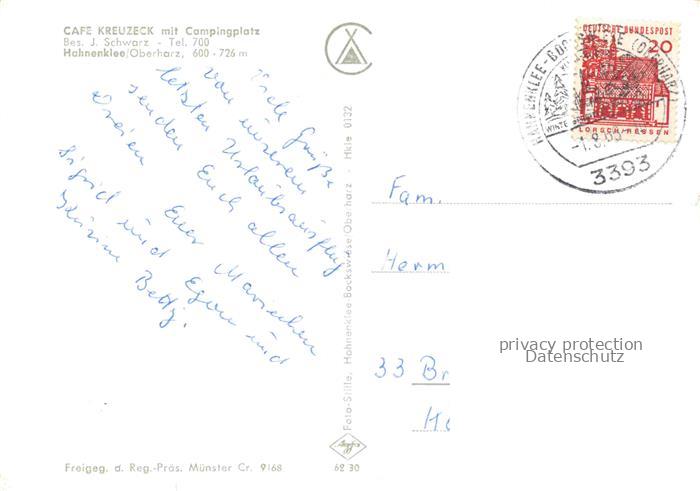 CAFE KREUZECK mit Campingplatz
Bes. J. Schwarz - Tel. 700
Hahnenklee/Oberharz, 600 - 726 m
Viele Grüße
von unserem
letzten Urlaubsausflug
senden Euch allen
Dreien
Euer Mariechen
Sigrid und Egon und
und
Betty.
Foto-Stille, Hahnenklee Bockswiese/Oberharz - Hale 0132
Agfa
Freigeg. d. Reg.-Präs. Münster Cr. 9168
62 30
DEUTSCHE BUNDESPOST
20
LORSCH/HESSEN
HAHNENKLEE-BOCKSWIESE (OBERHARZ)
3393
Fam.
Herm
33 Br
privacy protection
Datenschutz